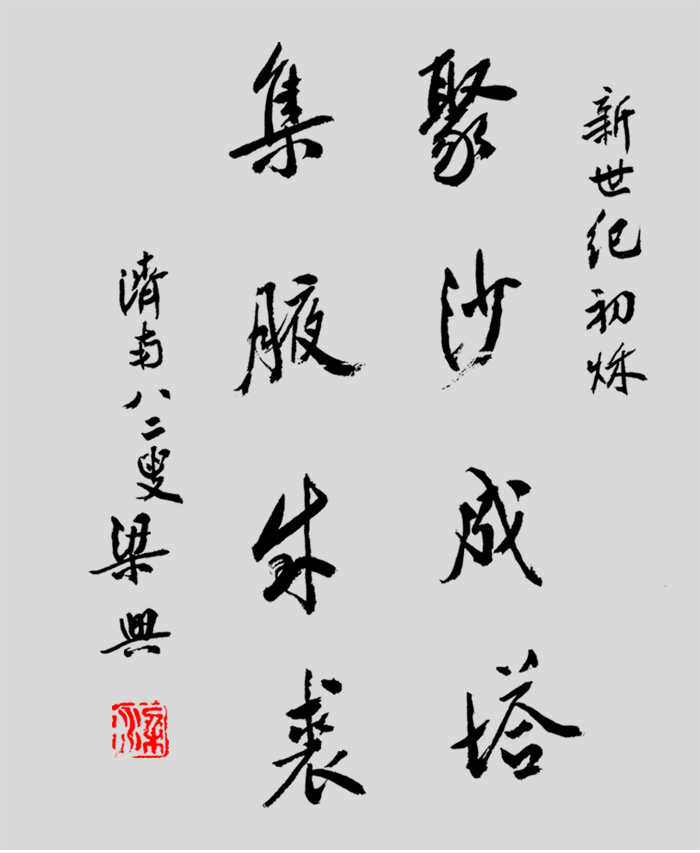 新世纪初秌
聚沙成塔
集腋成裘
濟南八二叟梁興